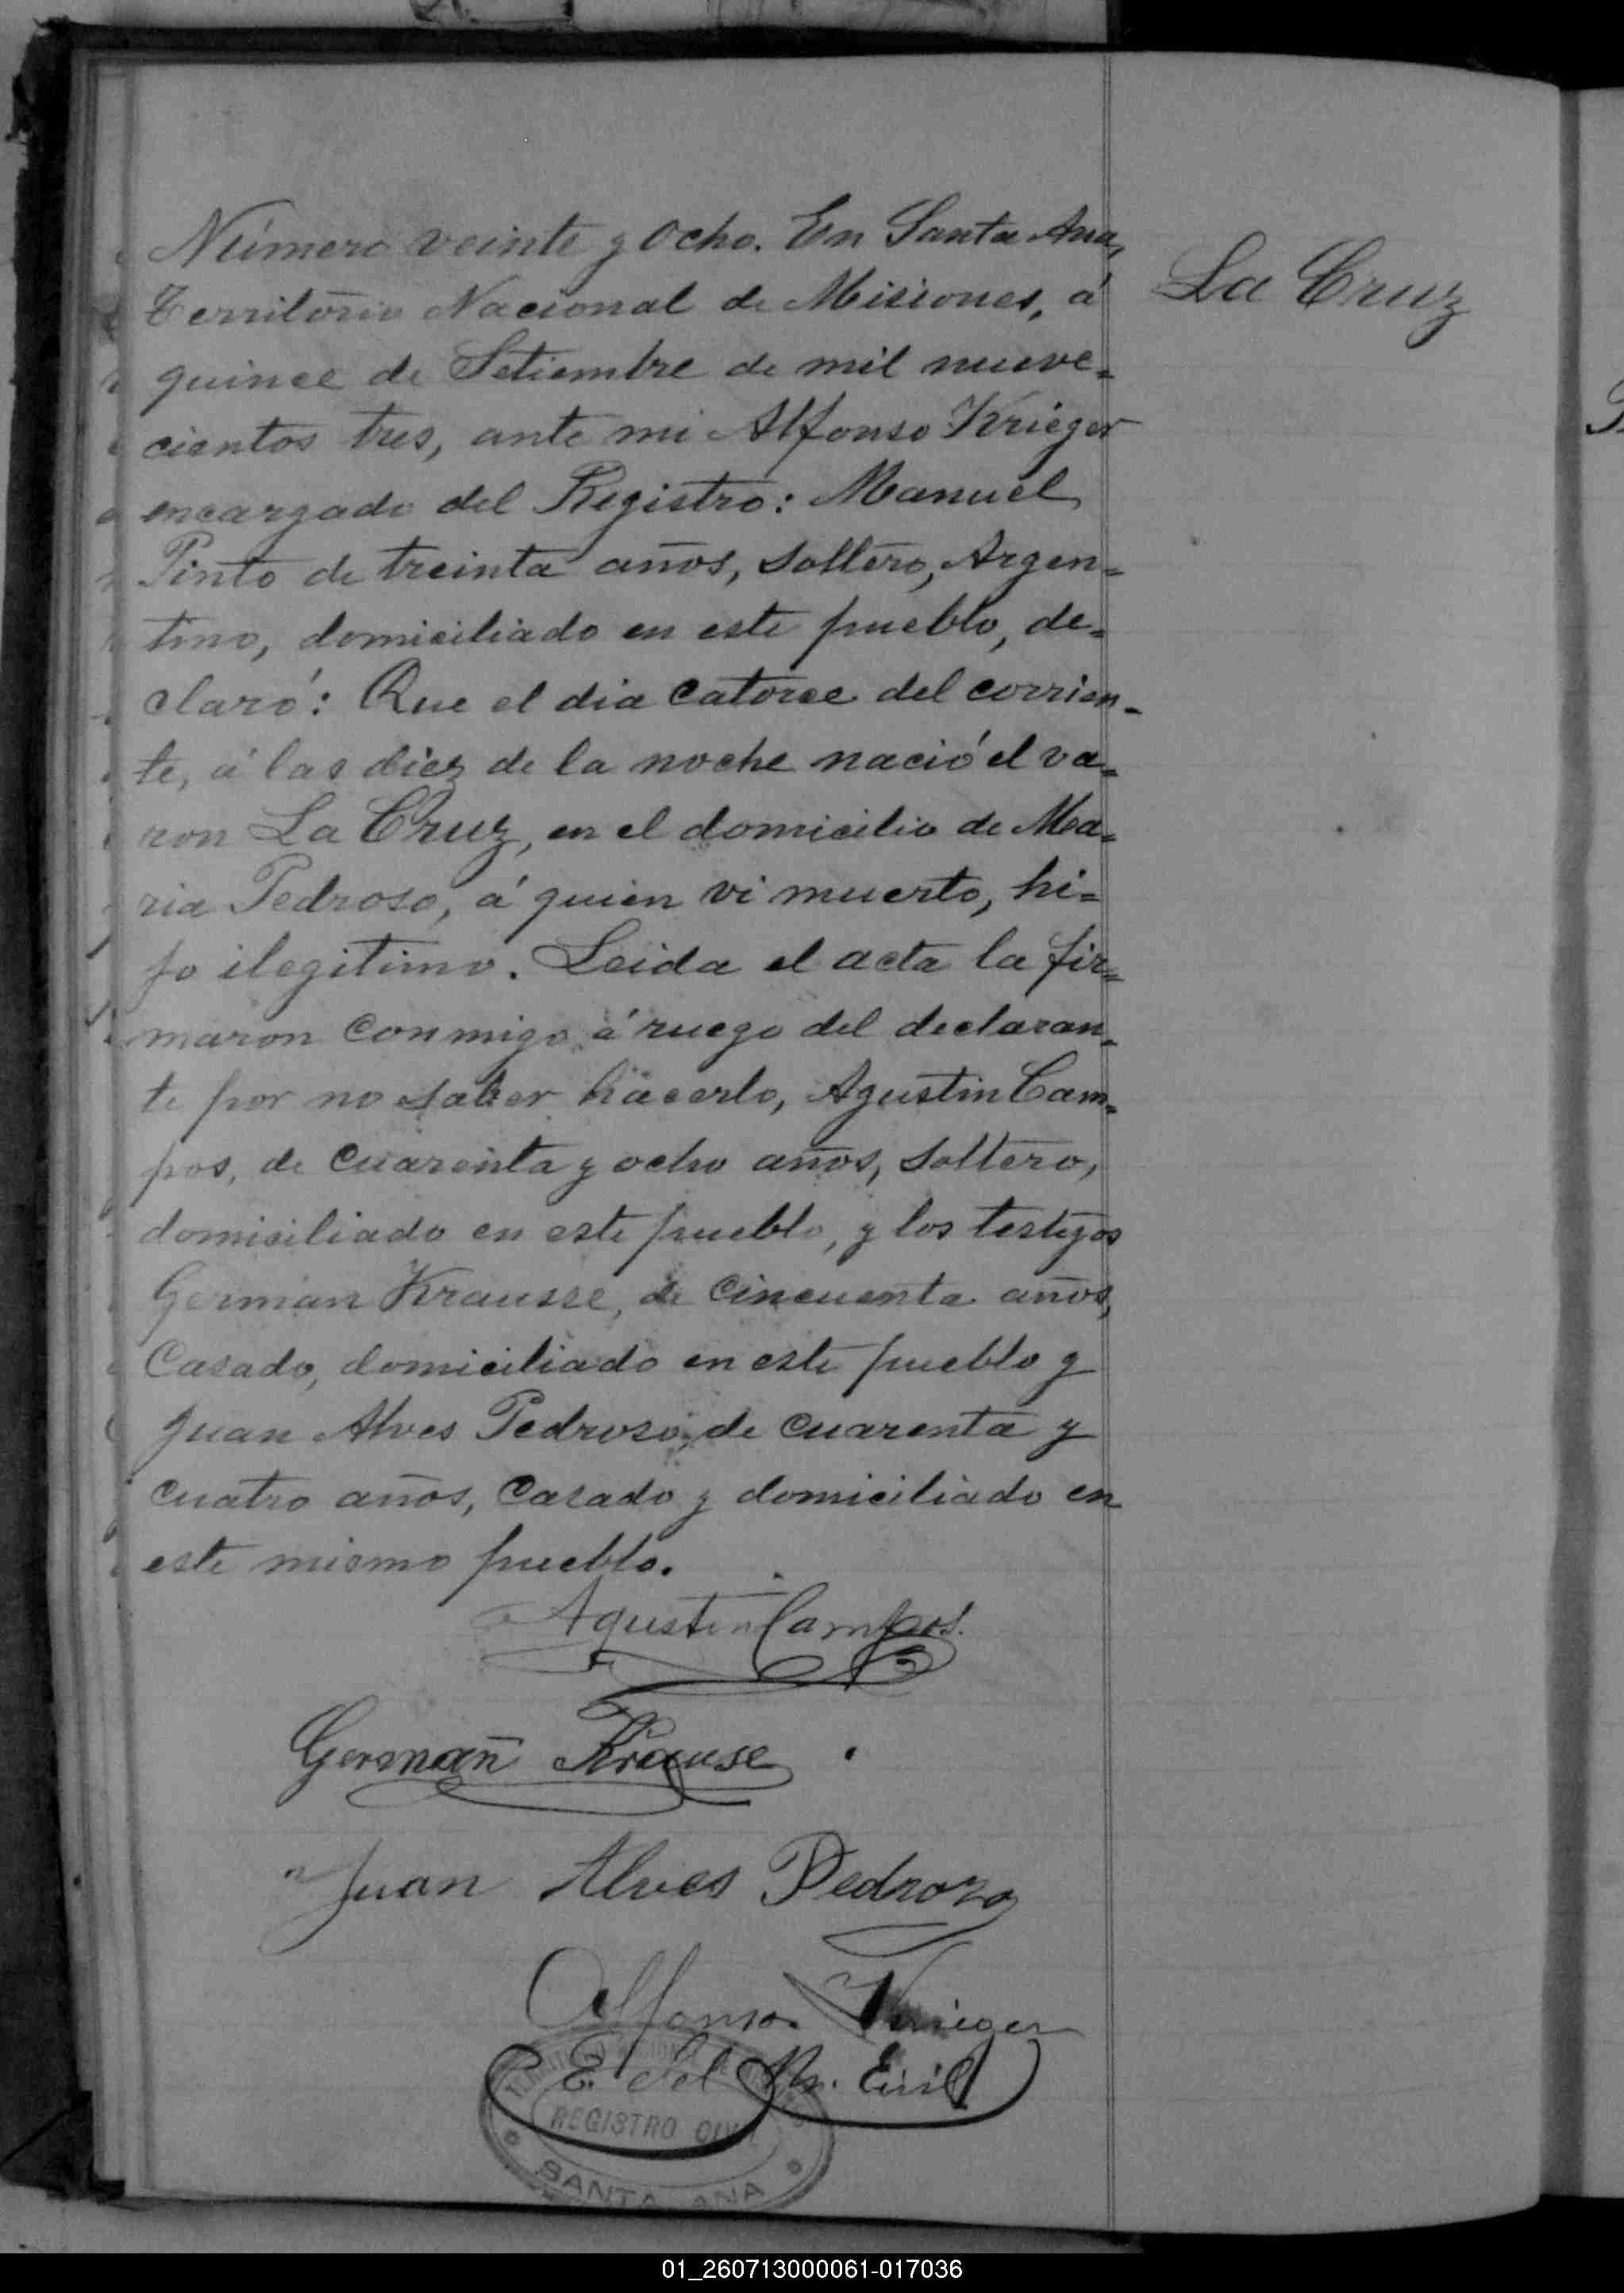 Número veinte y Ocho. En Santa Ana,
Territorio Nacional de Misiones, á
quince de Setiembre de mil nueve=
cientos tres, ante mi Alfonso Krieger
encargado del Registro: Manuel
Pinto de treinta años, soltero, Argen=
tino, domiciliado en este pueblo, de=
claró: Que el dia catorce del corrien-
te, á las diez de la noche nació el va=
ron La Cruz, en el domicilio de Ma=
ria Pedroso, á quien vi muerto, hi=
jo ilegitimo. Leida el acta la fir=
maron conmigo á ruego del declaran=
te por no saber hacerlo, Agustin Cam=
pos, de cuarenta y ocho años, soltero,
domiciliado en este pueblo, y los testigos
German Krausse, de cincuenta años,
Casado, domiciliado en este pueblo y
Juan Alves Pedroso, de cuarenta y
cuatro años, casado y domiciliado en
este mismo pueblo.
La Cruz
Agustin Campos.
Germañ Krause
Juan Alves Pedrozo
Alfonso Krieger
E. del R. Civil
REGISTRO CIVIL
SANTA ANA
01_260713000061-017036